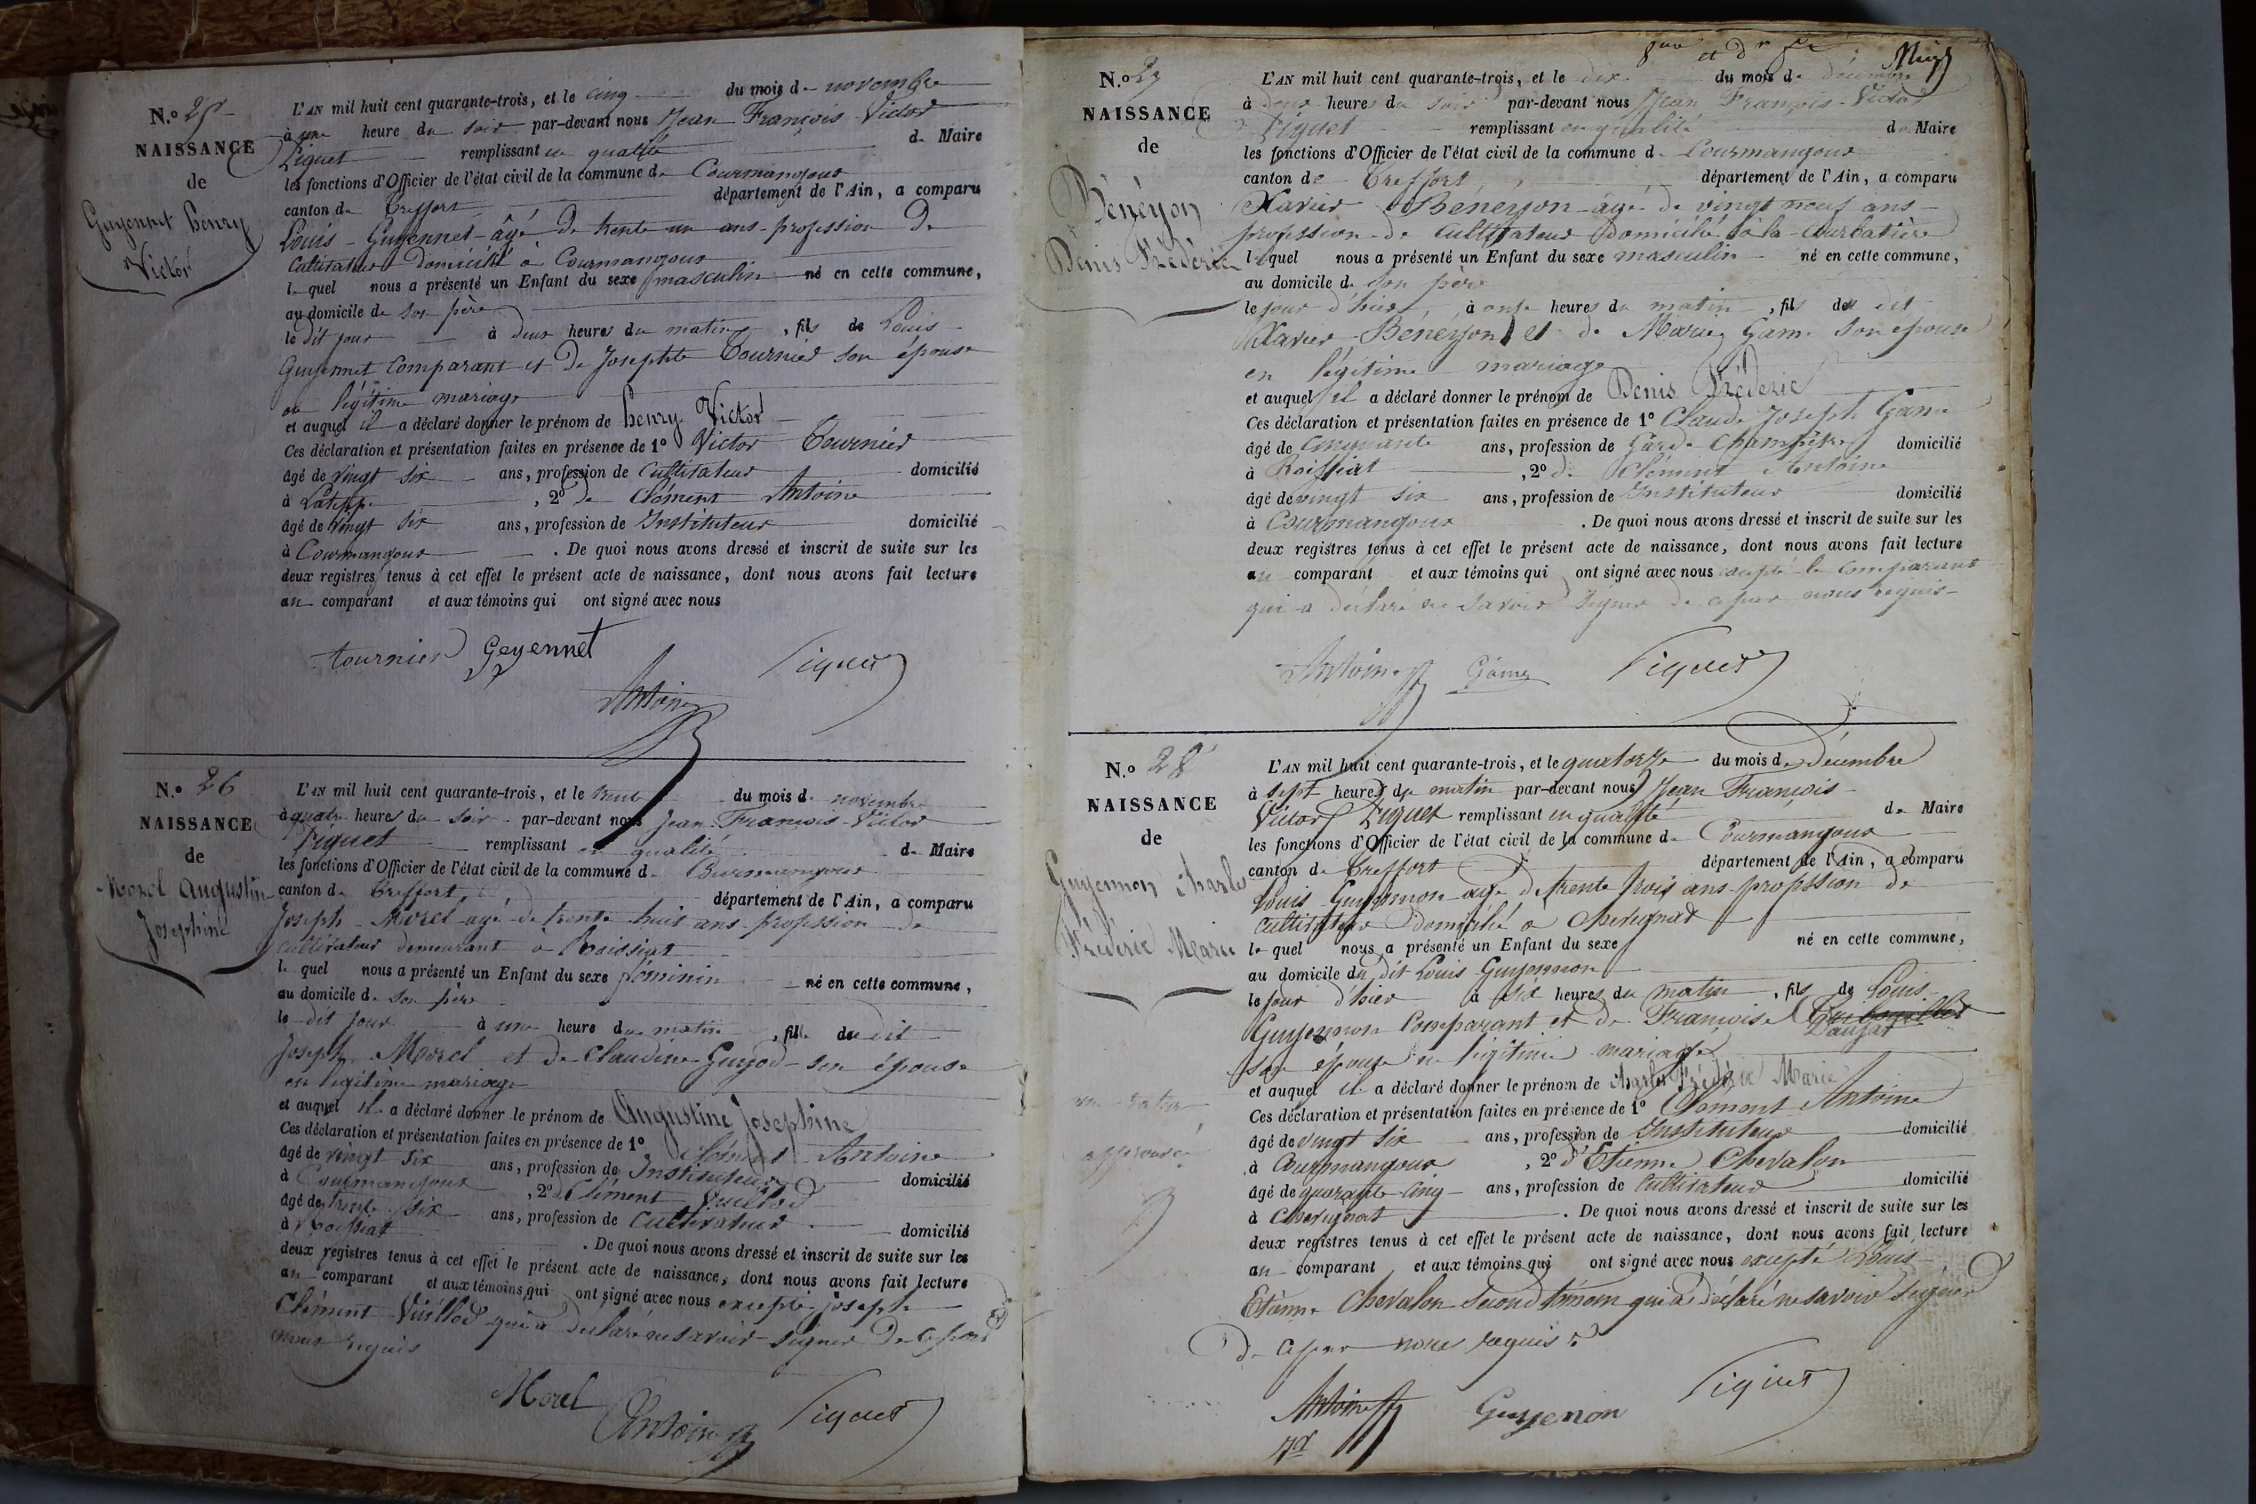 N.o 25
NAISSANCE
de
Guyennet henry
Victor
L'AN mil huit cent quarante-trois, et le cinq du mois de novembre
à une heure du soir par-devant nous Jean François Victor
Piquet remplissant en qualité de Maire
les fonctions d'Officier de l'état civil de la commune de Courmangoux
canton de Treffort département de l'Ain, a comparu
Louis Guyennet âgé de trente un ans profession de
cultivateur domicilié à Courmangoux
le quel nous a présenté un Enfant du sexe masculin né en cette commune,
au domicile de son père
le dit jour à deux heures du matin, fils de Louis
Guyennet comparant et de Josephte Tournier son épouse
en légitime mariage
et auquel il a déclaré donner le prénom de henry Victor
Ces déclaration et présentation faites en présence de 1o Victor Tournier
âgé de vingt six ans, profession de cultivateur domicilié
à , 2o de Clément Antoine
âgé de vingt six ans, profession de Instituteur domicilié
à Courmangoux . De quoi nous avons dressé et inscrit de suite sur les
deux registres tenus à cet effet le présent acte de naissance, dont nous avons fait lecture
au comparant et aux témoins qui ont signé avec nous
tournier Geyennet Piquet
Antoine
N.o 26
NAISSANCE
de
Morel Augustine
Josephine
L'AN mil huit cent quarante-trois, et le trente du mois de novembre
à quatre heures du soir par-devant nous Jean François Victor
Piquet remplissant en qualité de Maire
les fonctions d'Officier de l'état civil de la commune de Courmangoux
canton de Treffort département de l'Ain, a comparu
Joseph Morel agé de trente huit ans profession de
cultivateur demeurant à Roissiat
le quel nous a présenté un Enfant du sexe féminin né en cette commune,
au domicile de son père
le dit jour à une heure du matin, fille du dit
Joseph Morel et de Claudine Guyod son épouse
en légitime mariage
et auquel il a déclaré donner le prénom de Augustine Josephine
Ces déclaration et présentation faites en présence de 1o Clément Antoine
âgé de vingt six ans, profession de Instituteur domicilié
à Courmangoux , 2o de Clément Vuillod
âgé de trente six ans, profession de cultivateur domicilié
à Roissiat . De quoi nous avons dressé et inscrit de suite sur les
deux registres tenus à cet effet le présent acte de naissance, dont nous avons fait lecture
au comparant et aux témoins qui ont signé avec nous excepté joseph
Clément Vuillod qui a déclaré ne savoir signer de ce par
nous requis
Morel Antoine Piquet
N.o 27
NAISSANCE
de
Bénéyon
Denis Fréderic
L'AN mil huit cent quarante-trois, et le dix du mois de décembre
à deux heures du soir par-devant nous Jean François Victor
Piquet remplissant en qualité de Maire
les fonctions d'Officier de l'état civil de la commune de Courmangoux
canton de Treffort département de l'Ain, a comparu
Xavier Beneyon âgé de vingt neuf ans
profession de cultivateur domicilié à la Courbatière
le quel nous a présenté un Enfant du sexe masculin né en cette commune,
au domicile de son père
le jour d'hier, à onze heures du matin, fils du dit
Xavier Beneyon et de Marie Game son épouse
en légitime mariage
et auquel il a déclaré donner le prénom de Denis Fréderic
Ces déclaration et présentation faites en présence de 1o Claude Joseph Game
âgé de cinquante ans, profession de Garde Champêtre domicilié
à Roissiat , 2o de Clément Antoine
âgé de vingt six ans, profession de Instituteur domicilié
à Courmangoux . De quoi nous avons dressé et inscrit de suite sur les
deux registres tenus à cet effet le présent acte de naissance, dont nous avons fait lecture
au comparant et aux témoins qui ont signé avec nous excepté le comparant
qui a déclaré ne savoir signer de ce par nous requis
Antoine Game Piquet
N.o 28
NAISSANCE
de
Guyennon Charles
Fréderic Marie
L'AN mil huit cent quarante-trois, et le quatorze du mois de décembre
à sept heures du matin par-devant nous Jean François
Victor Piquet remplissant en qualité de Maire
les fonctions d'Officier de l'état civil de la commune de Courmangoux
canton de Treffort département de l'Ain, a comparu
Louis Guyennon agé de trente trois ans profession de
cultivateur domicilié à Chevignat
le quel nous a présenté un Enfant du sexe né en cette commune,
au domicile du dit Louis Guyennon
le jour d'hier à six heures du matin, fils de Louis
Guyennon Comparant et de Françoise
son épouse en légitime mariage
et auquel il a déclaré donner le prénom de Charles Fréderic Marie
Ces déclaration et présentation faites en présence de 1o Clément Antoine
âgé de vingt six ans, profession de Instituteur domicilié
à Courmangoux , 2o d'Etienne Chevalon
âgé de quarante cinq ans, profession de Cultivateur domicilié
à Chevignat . De quoi nous avons dressé et inscrit de suite sur les
deux registres tenus à cet effet le présent acte de naissance, dont nous avons fait lecture
au comparant et aux témoins qui ont signé avec nous excepté Louis
Etienne Chevalon second témoin qui a déclaré ne savoir signer
de ce par nous requis
Antoine Guyenon Piquet